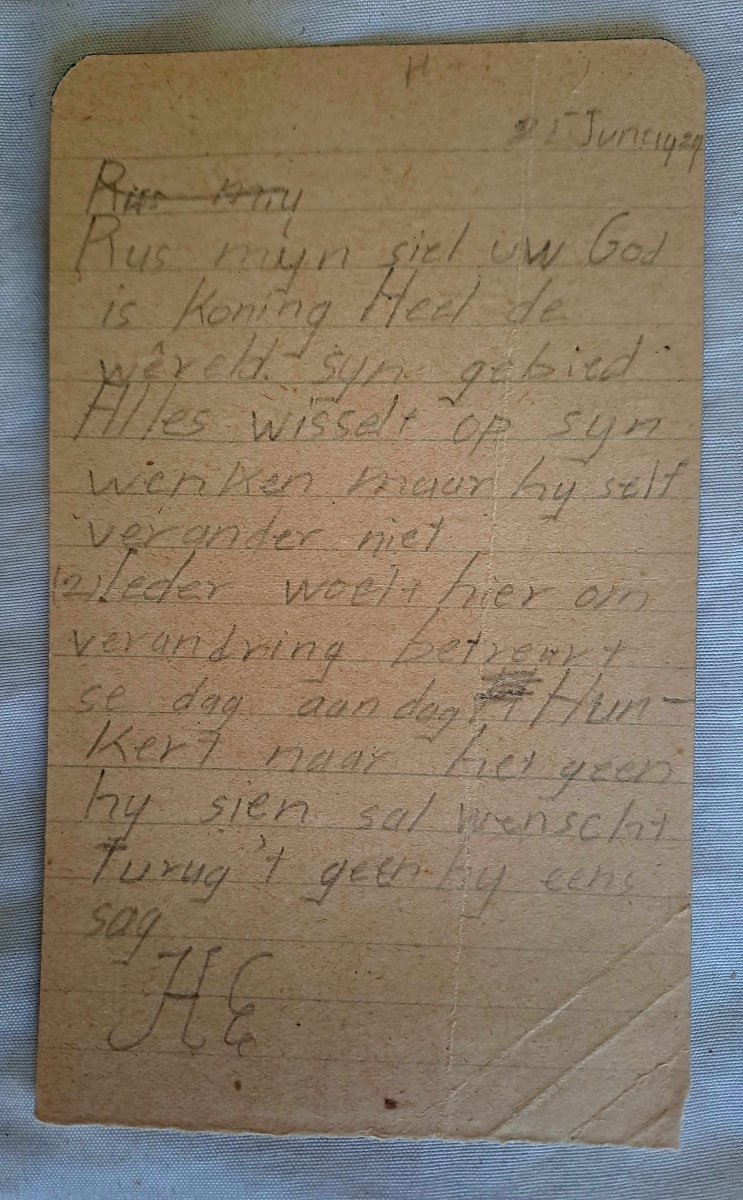 H
21 June 1929
Rus my
Rus myn siel uw God
is Koning Heel de
wêreld syn gebied
Alles wisselt op syn
wenken maar hy self
verander niet
(2) Ieder woelt hier om
verandring betreurt
se dag aan dag Hun-
kert naar het geen
hy sien sal wenscht
turug 't geen hy eens
sag
HE